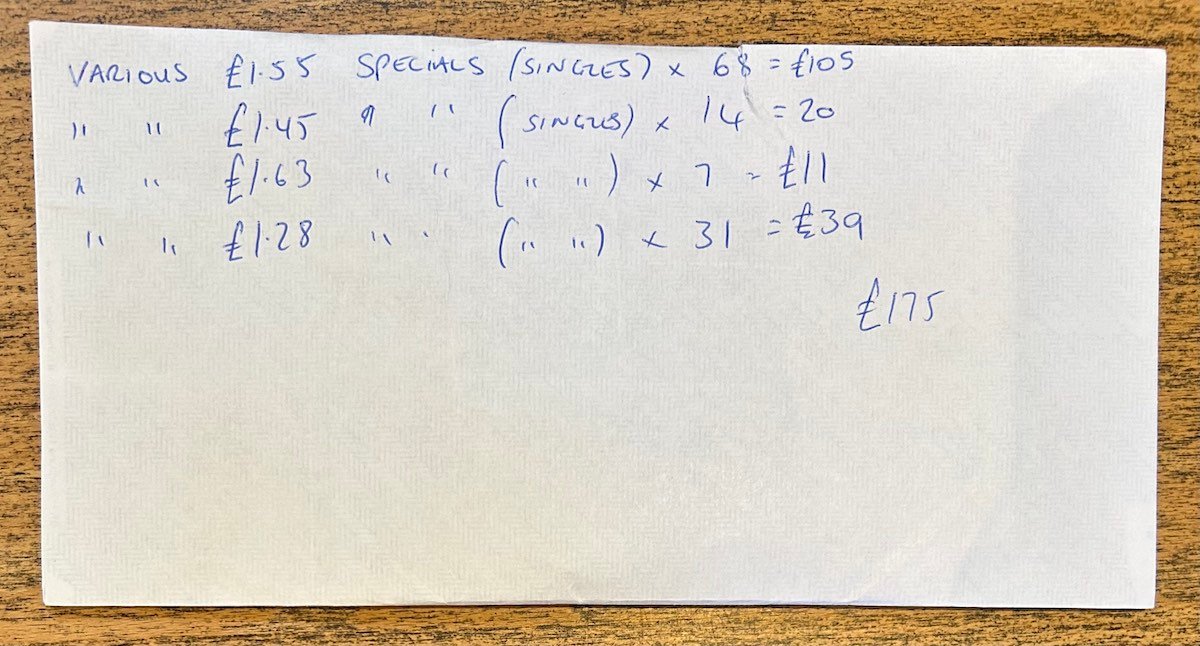 VARIOUS £1.55 SPECIALS (SINGLES) x 68 = £105
" " £1.45 " " (SINGLES) x 14 = 20
" " £1.63 " " (" ") x 7 = £11
" " £1.28 " " (" ") x 31 = £39
£175